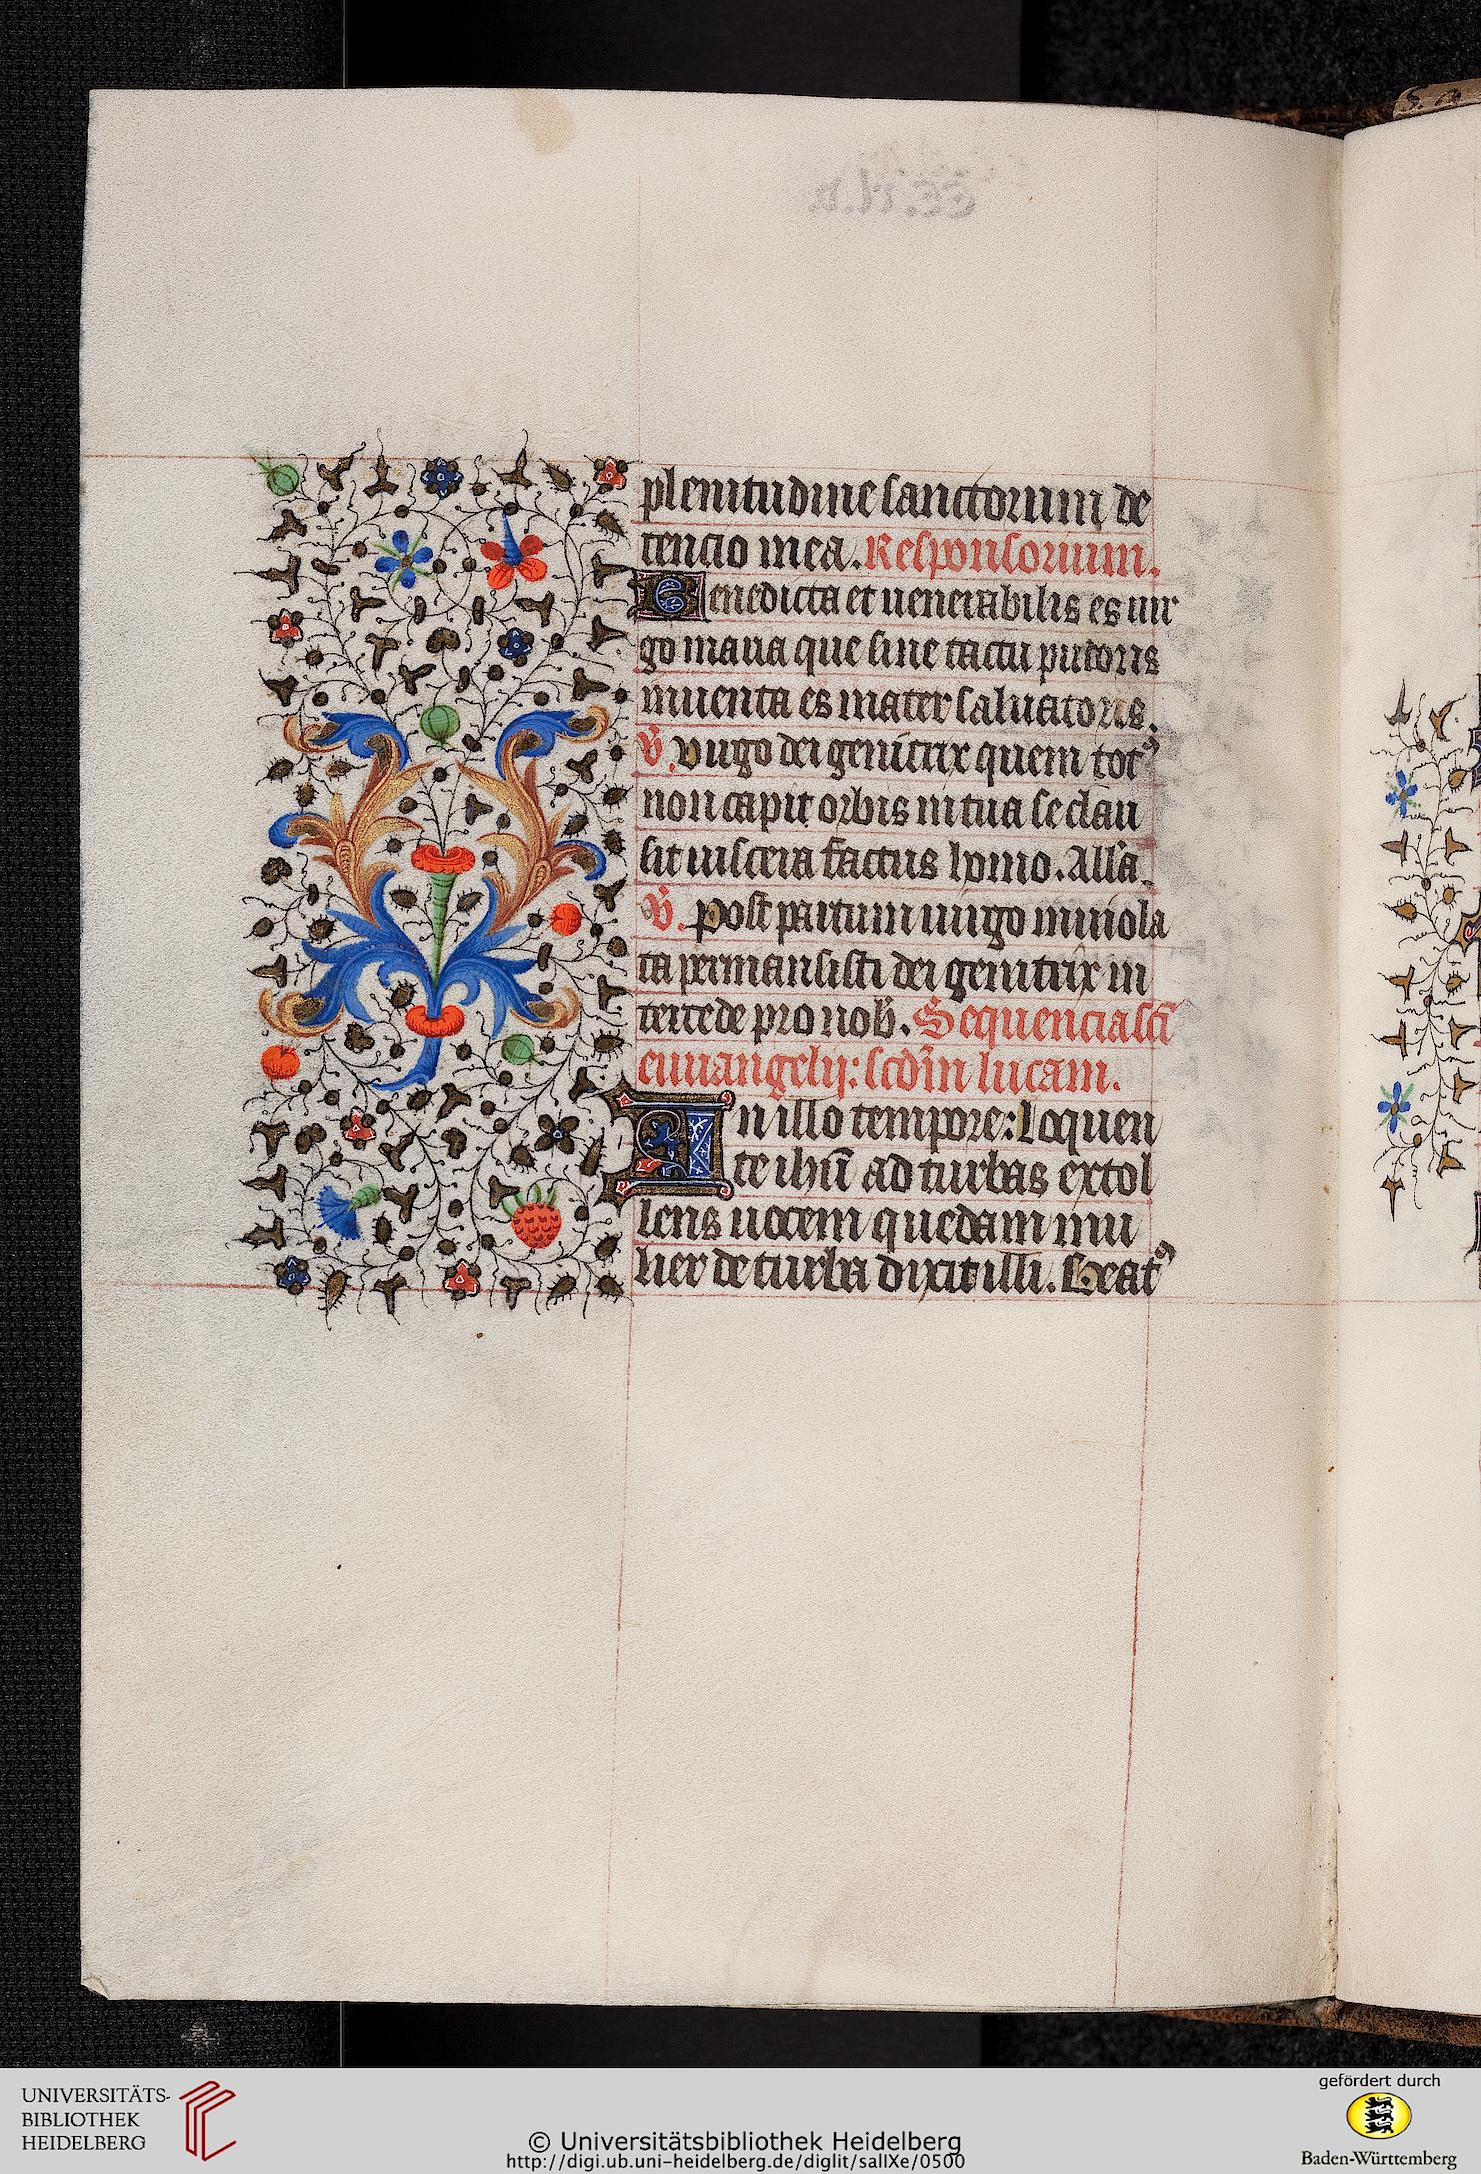 plenitudine sanctorum de
tencio mea. Responsorium.
Benedicta et venerabilis es vir
go maria que sine tactu pudoris
inventa es mater salvatoris.
V̄. Virgo dei genitrix quem totꝰ
non capit orbis in tua se clau
sit viscera factus homo. Alla.
V̄. Post partum virgo inviola
ta permansisti dei genitrix in
tercede pro nob̄. Sequencia sci̅
euuangelij: scdm̅ lucam.
In illo tempore: Loquen
te ihū ad turbas extol
lens vocem quedam mu
lier de turba dixit illi. Beatꝰ
UNIVERSITÄTS-
BIBLIOTHEK
HEIDELBERG
© Universitätsbibliothek Heidelberg
http://digi.ub.uni-heidelberg.de/diglit/salIXe/0500
gefördert durch
Baden-Württemberg